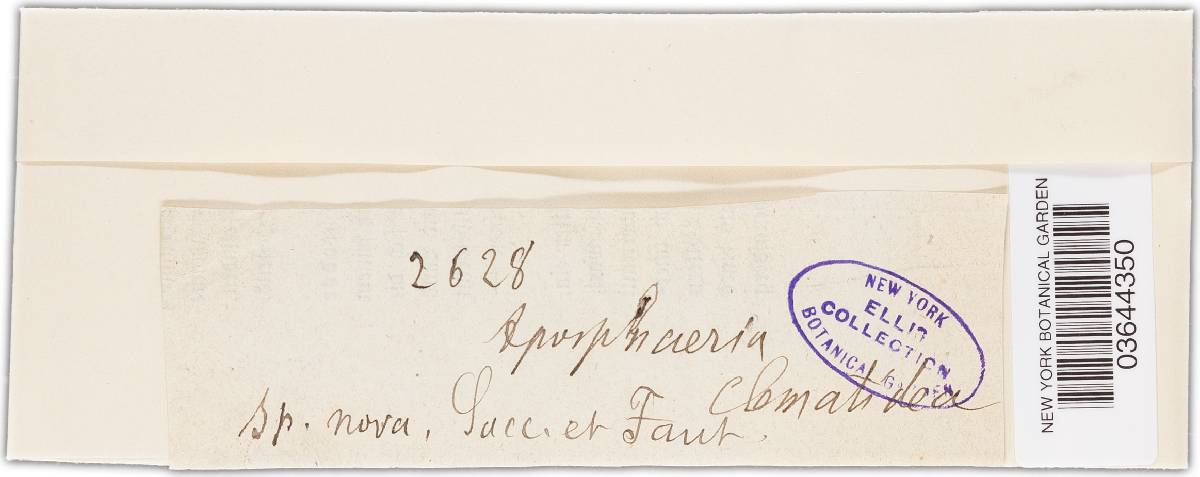 2628
Aposphaeria
Clematidea
Sp. nova. Sacc. et Faut.
NEW YORK
ELLIS
COLLECTION
BOTANICAL GARDEN
NEW YORK BOTANICAL GARDEN
03644350